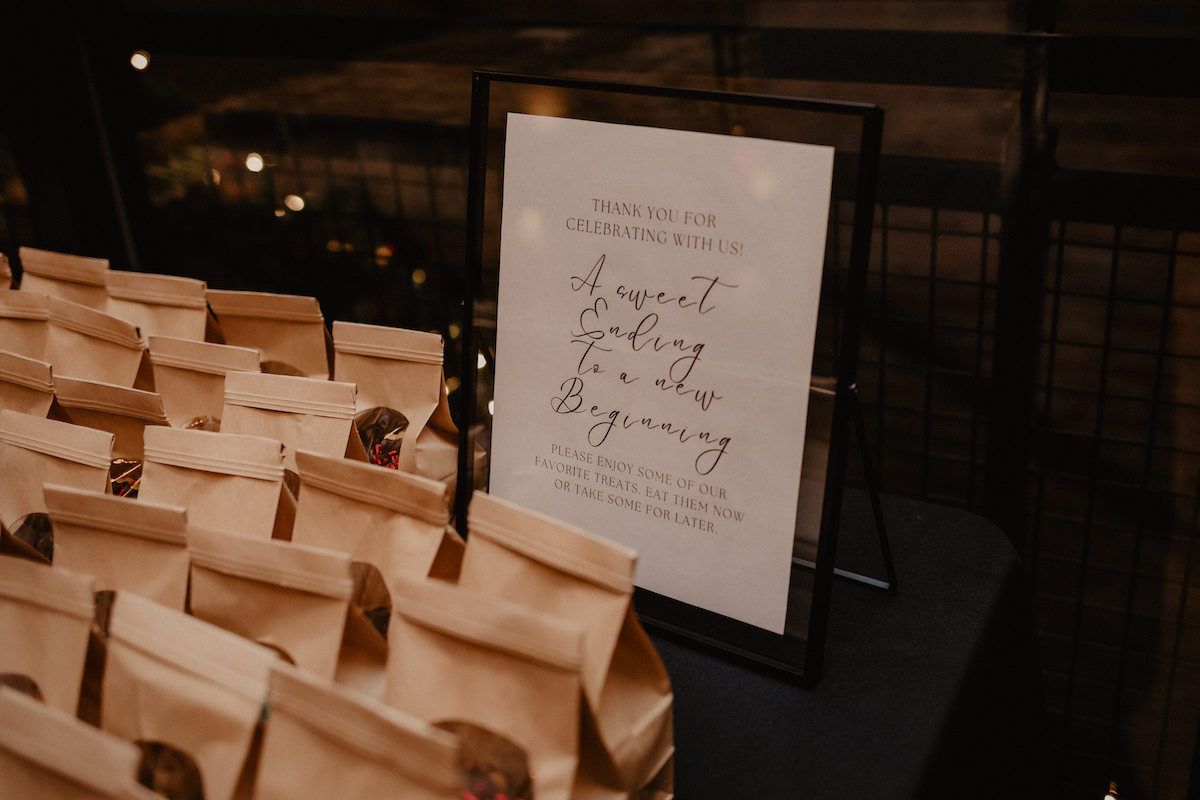 THANK YOU FOR
CELEBRATING WITH US!
A sweet
Ending
To a new
Beginning
PLEASE ENJOY SOME OF OUR
FAVORITE TREATS. EAT THEM NOW
OR TAKE SOME FOR LATER.